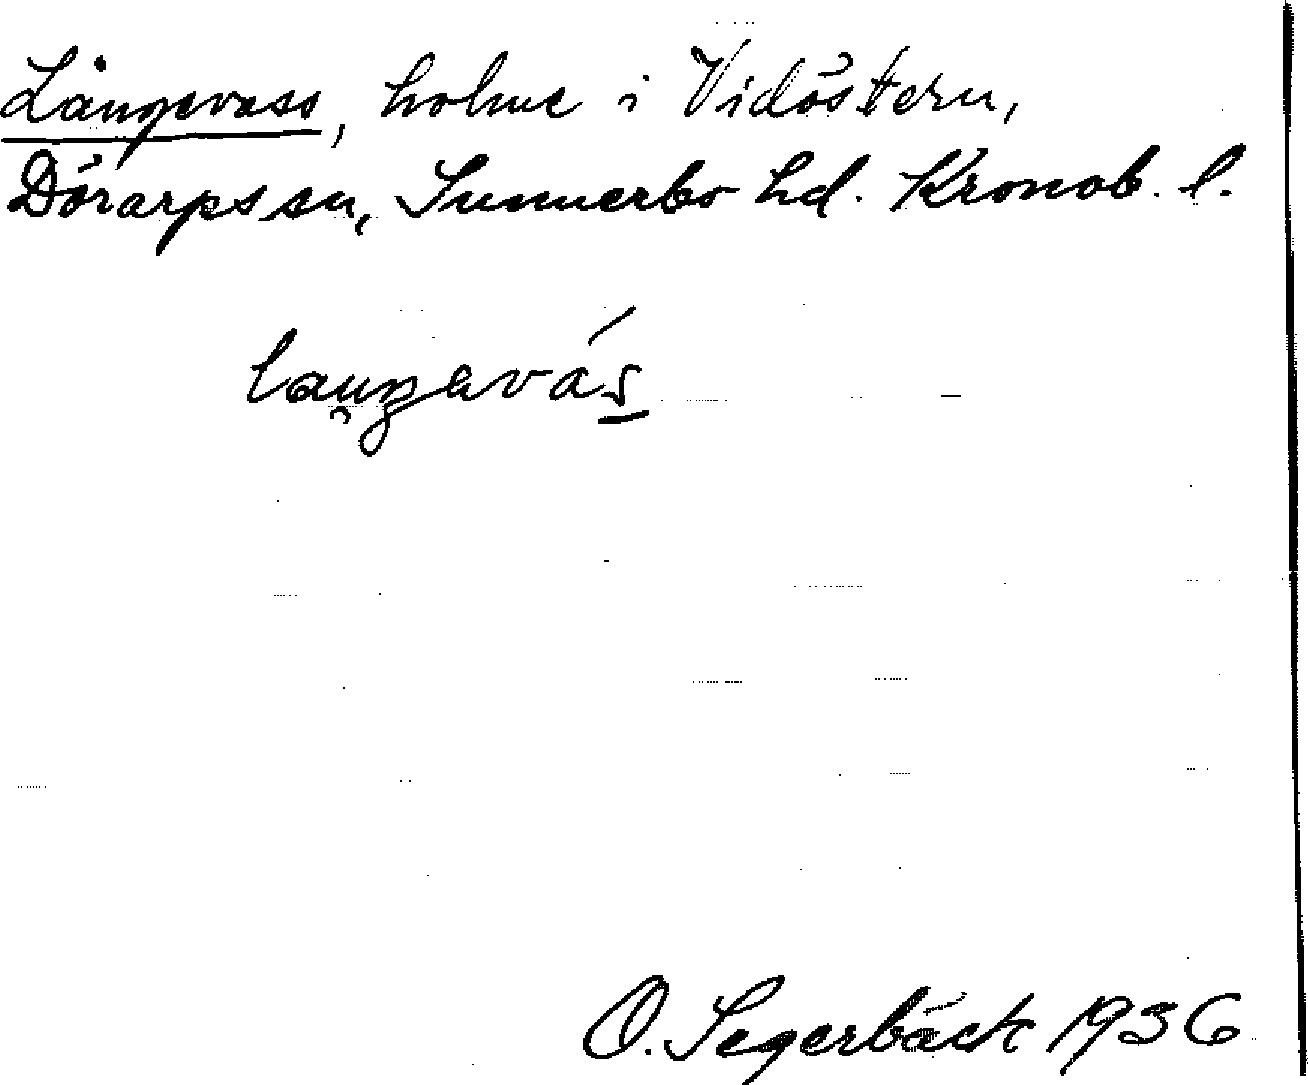 Långevass, holme i Vidöstern,
Dörarps sn, Sunnerbo hd. Kronob. l.
O. Segerbäck 1936